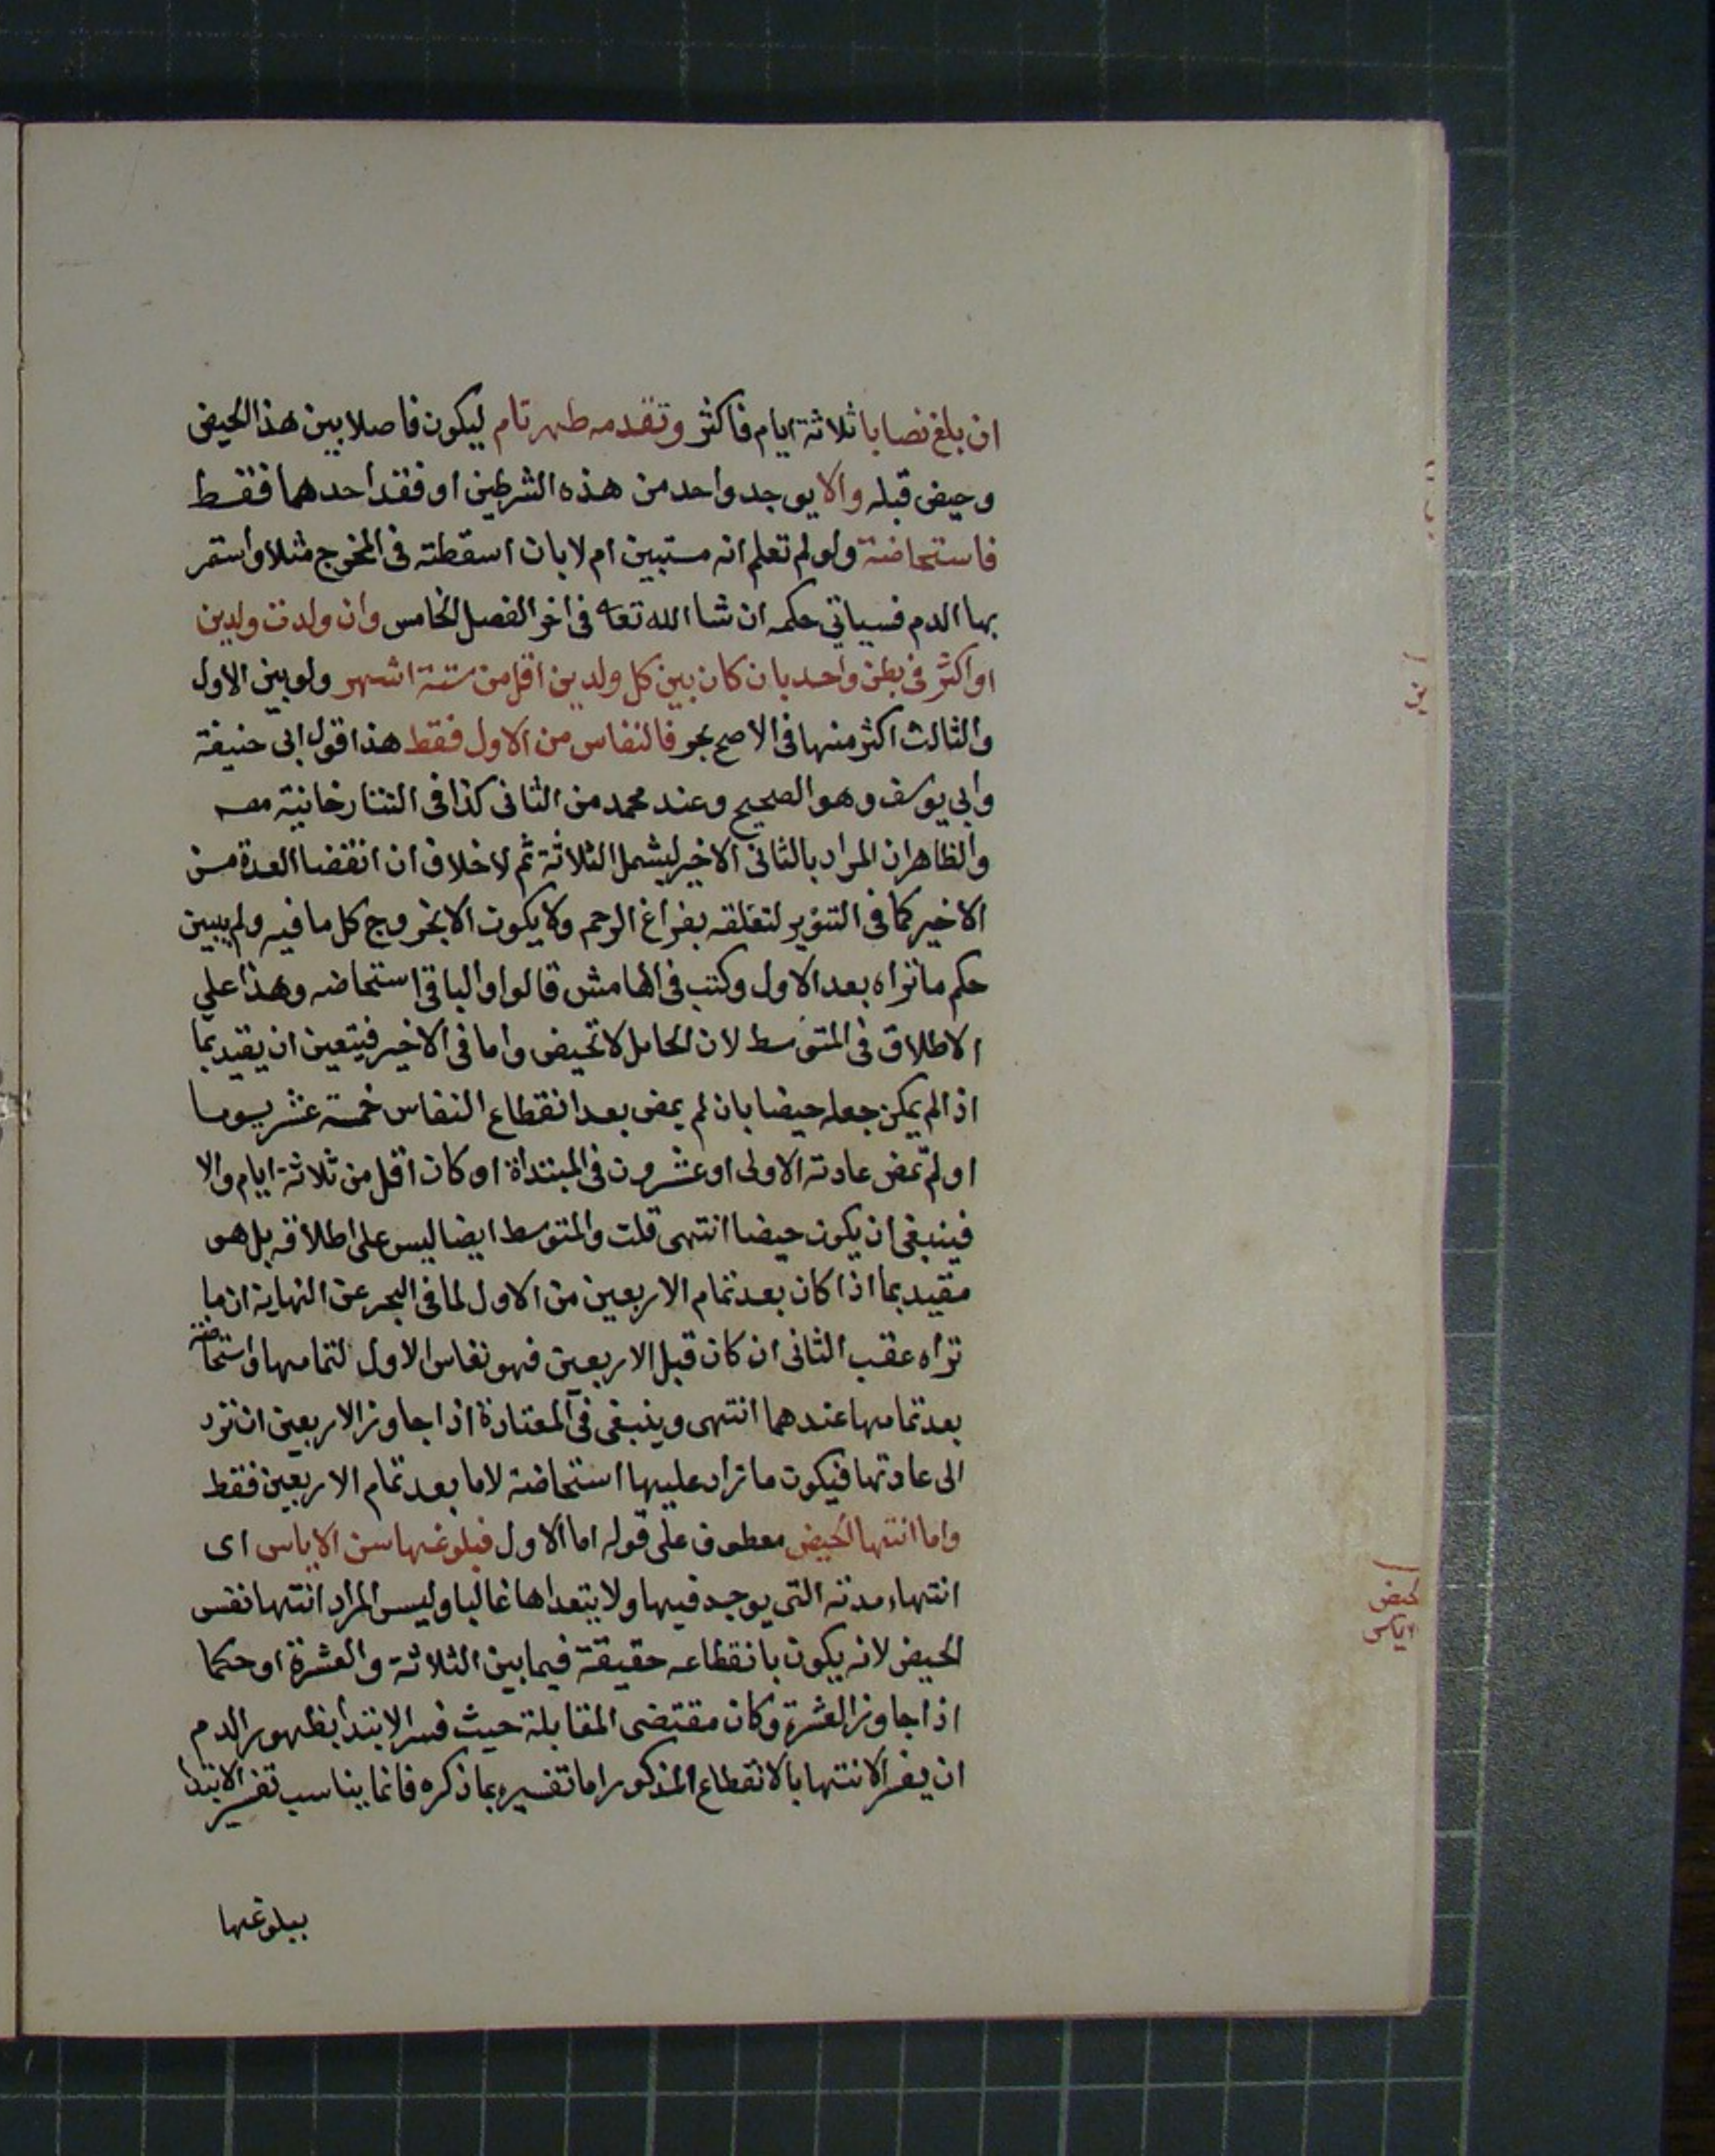 ان بلغ نصابا ثلاثة ايام فاكثر وتقدمه طهر تام ليكون فاصلا بين هذا الحيض
وحيض قبله والا يوجد واحد من هذه الشرطين او فقد احدهما فقط
فاستحاضة ولو لم تعلم انه مستبين ام لا بان اسقطته في المخرج مثلا واستمر
بها الدم فسياتي حكمه ان شا الله تعا في اخر الفصل الخامس وان ولدت ولدين
او اكثر في بطن واحد بان كان بين كل ولدين اقل من ستة اشهر ولو بين الاول
والثالث اكثر منها في الاصح بحر فالنفاس من الاول فقط هذا قول ابى حنيفة
وابي يوسف وهو الصحيح وعند محمد من الثانى كذا فى التتارخانية مصـ
والظاهر ان المراد بالثانى الاخير ليشمل الثلاثة ثم لا خلاف ان انقضا العدة من
الاخير كما فى التنوير لتعلقه بفراغ الرحم ولا يكون الا بخروج كل ما فيه ولم يبين
حكم ما تراه بعد الاول وكتب فى الهامش قالوا والباقى استحاضه وهذا على
الاطلاق فى المتوسط لان الحامل لا تحيض واما فى الاخير فيتعين ان يقيد بما
اذا لم يمكن جعله حيضا بان لم يمض بعد انقطاع النفاس خمسة عشر يوما
او لم تمض عادته الاولى او عشرون فى المبتداة او كان اقل من ثلاثة ايام والا
فينبغى ان يكون حيضا انتهى قلت والمتوسط ايضا ليس على اطلاقه بل هو
مقيد بما اذا كان بعد تمام الاربعين من الاول لما فى البحر عن النهاية ان ما
تراه عقب الثانى ان كان قبل الاربعين فهو نفاس الاول لتمامها واستحاضة
بعد تمامها عندهما انتهى وينبغى فى المعتادة اذا جاوز الاربعين ان ترد
الى عادتها فيكون ما زاد عليها استحاضة لا ما بعد تمام الاربعين فقط
واما انتها الحيض معطوف على قوله اما الاول فبلوغها سن الاياس اى
انتهاء مدته التى يوجد فيها ولا يتعداها غالبا وليس المراد انتها نفس
الحيض لانه يكون بانقطاعه حقيقة فيما بين الثلاثة والعشرة او حكما
اذا جاوز العشرة وكان مقتضى المقابلة حيث فسر الابتدا بظهور الدم
ان يفسر الانتها بالانقطاع المذكور اما تفسيره بما ذكره فانما يناسب تفسير الابتدا
ببلوغها
حيض
اياس